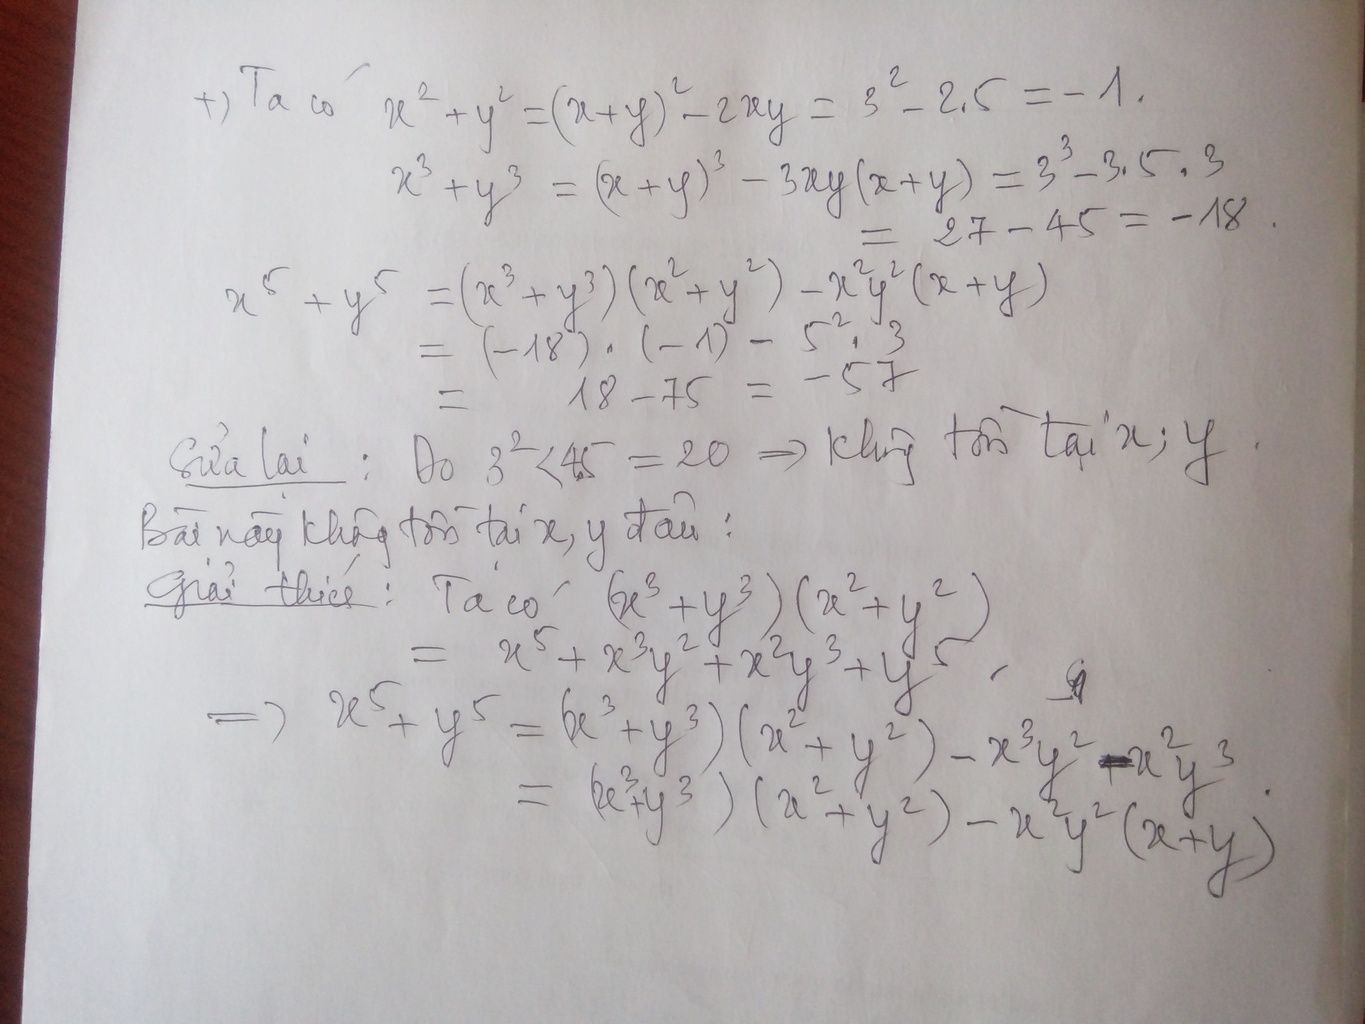 +) Ta có x² + y² = (x+y)² - 2xy = 3² - 2.5 = -1.
x³ + y³ = (x+y)³ - 3xy(x+y) = 3³ - 3.5.3
= 27 - 45 = -18.
x⁵ + y⁵ = (x³ + y³)(x² + y²) - x²y²(x+y)
= (-18).(-1) - 5².3
= 18 - 75 = -57
Sửa lại : Do 3² < 4.5 = 20 => không tồn tại x; y.
Bài này không tồn tại x, y đâu :
Giải thích : Ta có (x³ + y³)(x² + y²)
= x⁵ + x³y² + x²y³ + y⁵.
=> x⁵ + y⁵ = (x³ + y³)(x² + y²) - x³y² - x²y³
= (x³+y³)(x² + y²) - x²y²(x+y).